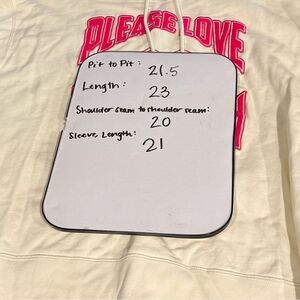 PLEASE LOVE
Pit to Pit: 21.5
Length: 23
Shoulder seam to shoulder seam:
20
Sleeve Length:
21